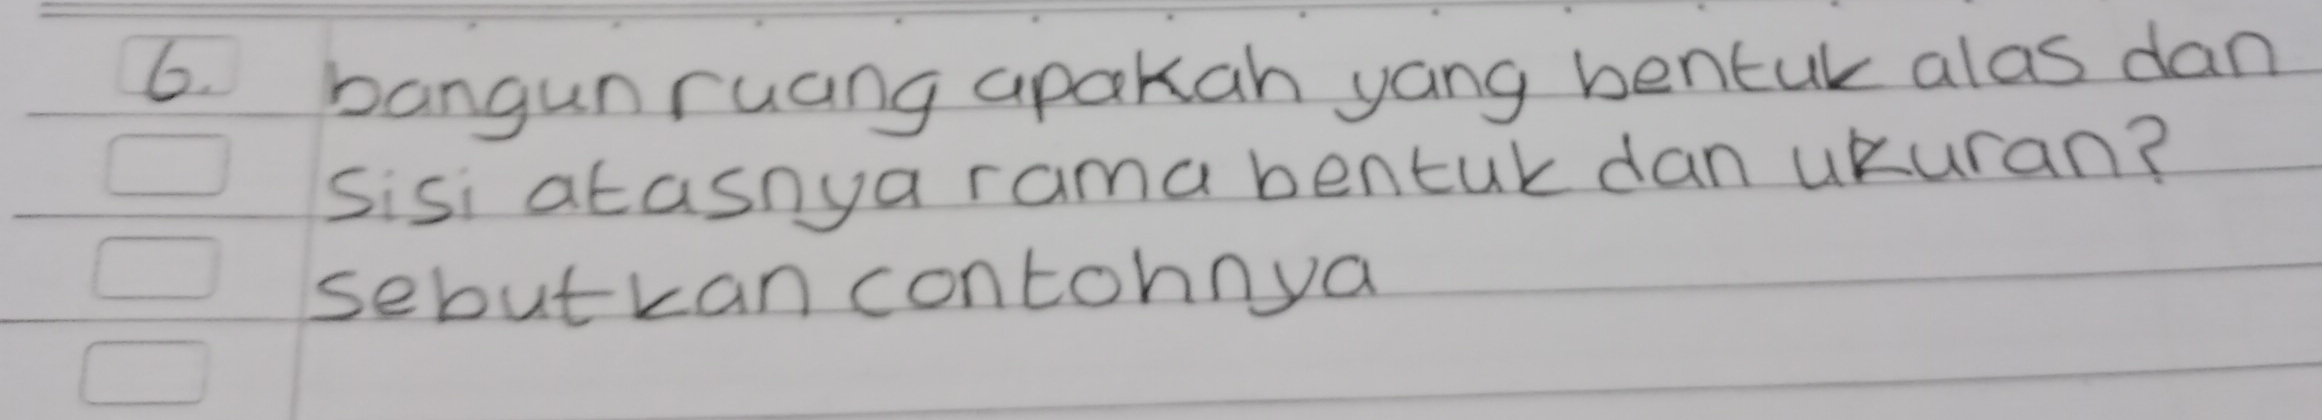 6. bangun ruang apakah yang bentuk alas dan
sisi atasnya rama bentuk dan ukuran?
sebutkan contohnya